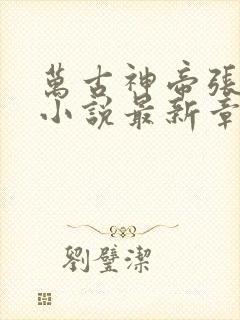 萬古神帝張
小說最新章
劉璧潔